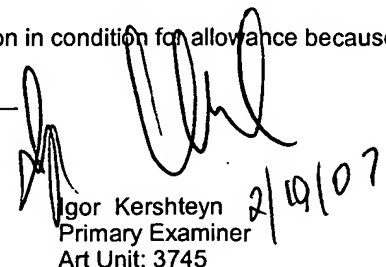 on in condition for allowance because
Igor Kershteyn
Primary Examiner
Art Unit: 3745